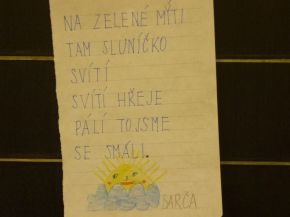 NA ZELENÉ MÝTI
TAM SLUNÍČKO
SVÍTÍ
SVÍTÍ HŘEJE
PÁLÍ TOJSME
SE SMÁLI.
SARČA